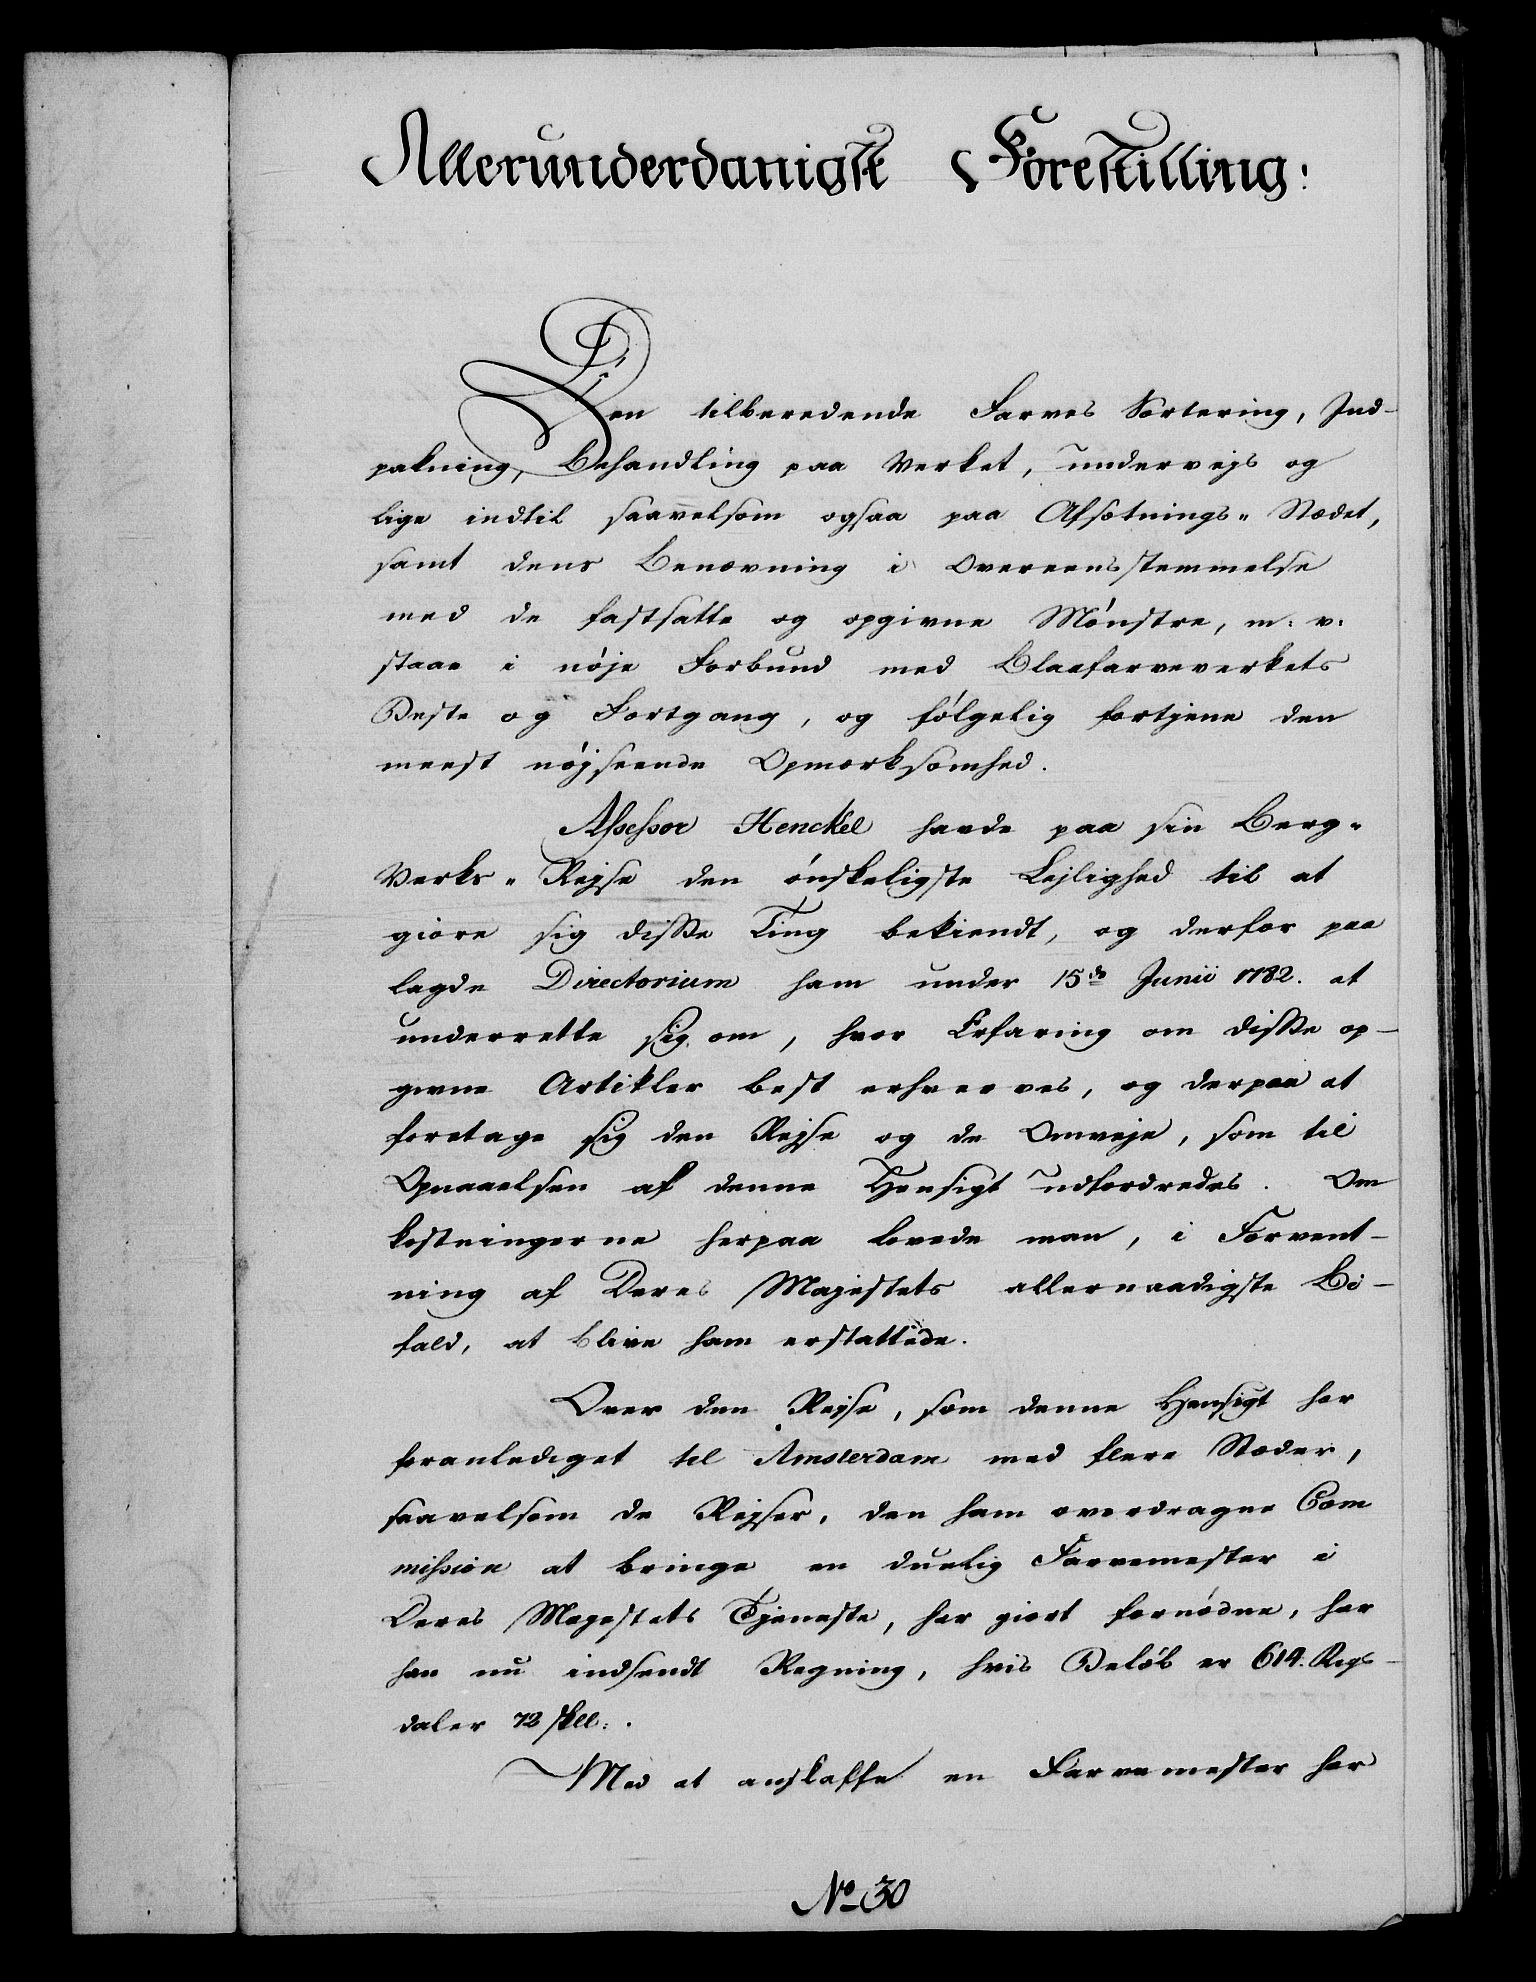 Allerunderdanigste Forestilling:
Den tilberedende Farves Sortering, Ind-
pakning, Behandling paa Verket, undervejs og
lige indtil saavelsom ogsaa paa Afsætnings„ Stædet,
samt dens Benævning i Overeensstemmelse
med de fastsatte og opgivne Mønstre, m: v:
staae i nøje Forbund med Blaafarveverkets
Beste og Fortgang, og følgelig fortjene den
meest nøjseende Opmærksomhed.
Assessor Henckel havde paa sin Berg„
Verks„ Rejse den ønskeligste Lejlighed til at
giøre sig disse Ting bekiendt, og derfor paa
lagde Directorium ham under 15de Junii 1782. at
underrette sig om, hvor Erfaring om disse op-
givne Artikler best erhverves, og derpaa at
foretage sig den Rejse og de Omveje, som til
Opnaaelsen af denne Hensigt udfordredes. Om
kostningerne herpaa lovede man, i Forvent-
ning af Deres Majestets allernaadigste Bi-
fald, at blive ham erstattede.
Over den Rejse, som denne Hensigt har
foranlediget til Amsterdam med flere Stæder,
saavelsom de Rejser, den ham overdragne Com
mission at bringe en duelig Farvemester i
Deres Majestets Tjeneste, har giort fornødne, har
han nu indsendt Regning, hvis Beløb er 614. Rigs-
daler 72 skll:.
Med at anskaffe en Farvemester har
No 30